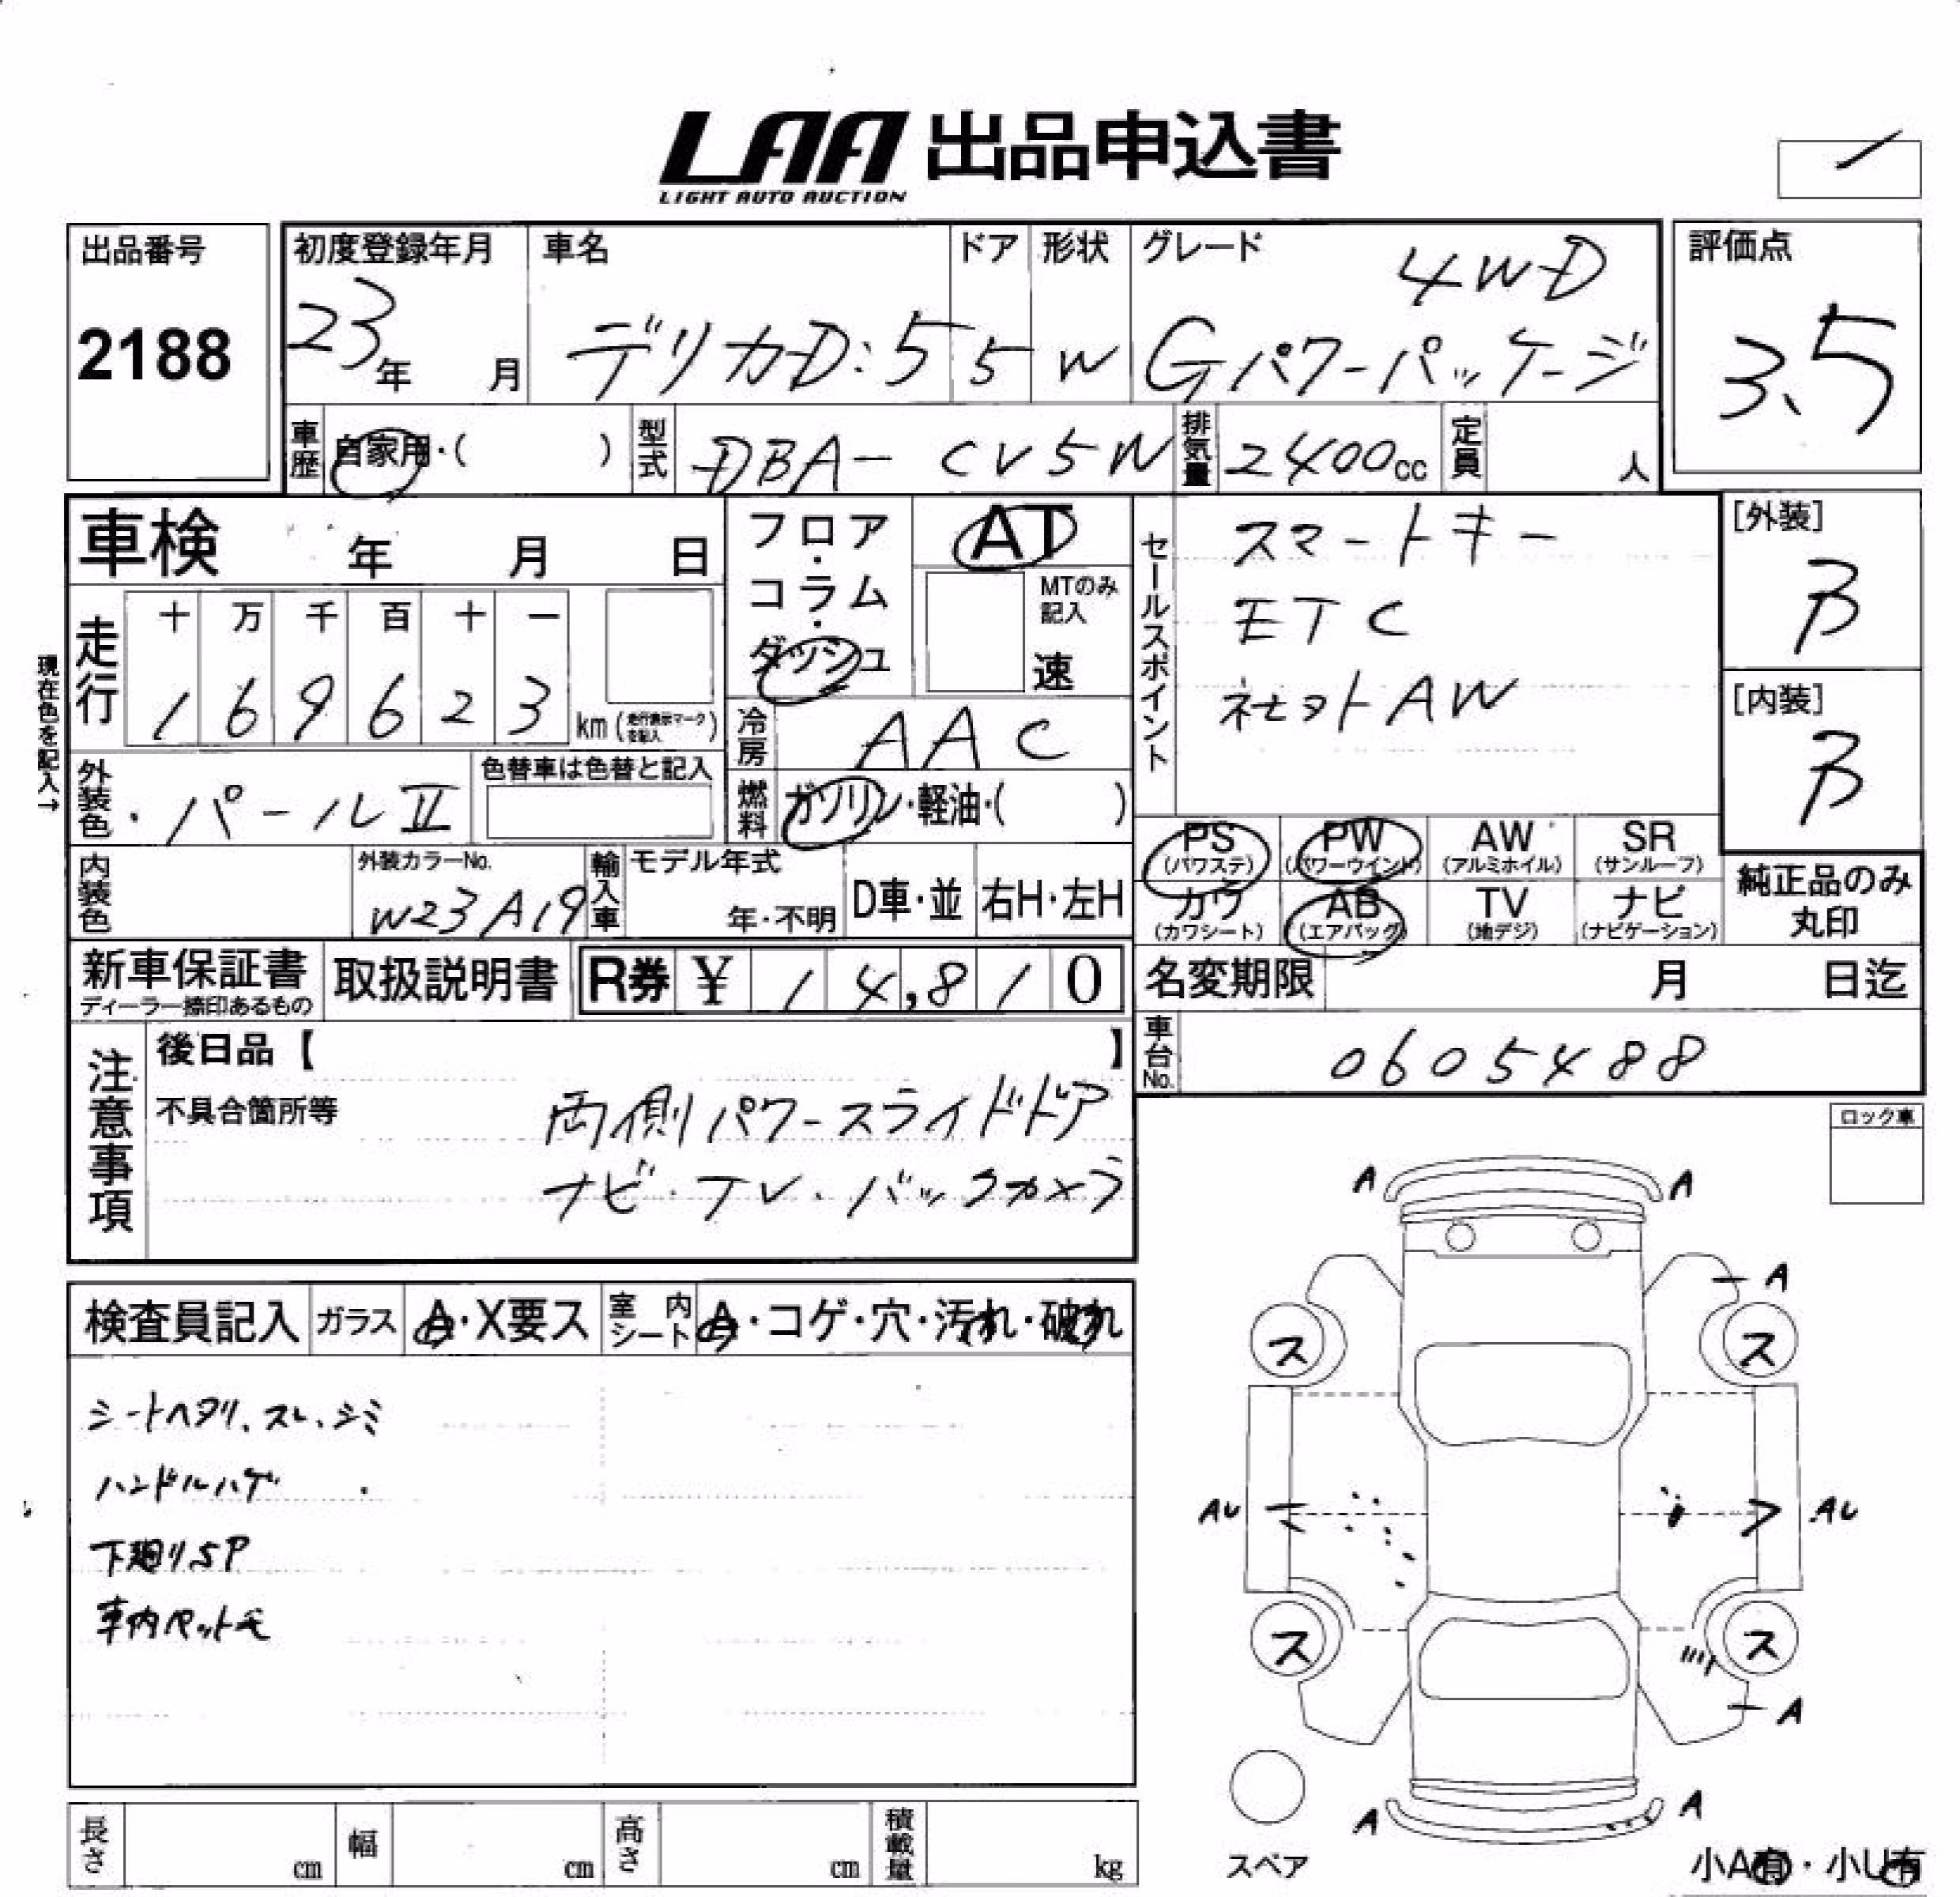 LAA 出品申込書
LIGHT AUTO AUCTION
出品番号
2188
初度登録年月
23年 月
車名
デリカD:5
ドア
5
形状
W
グレード
4WD
Gパワーパッケージ
評価点
3.5
車歴 自家用・( )
型式 DBA- CV5W
排気量 2400cc
定員 人
車検 年 月 日
フロア・コラム・ダッシュ
AT
MTのみ記入
速
セールスポイント
スマートキー
ETC
社ヨトAW
[外装]
B
[内装]
B
現在色を記入→
走行
十 万 千 百 十 一
1 6 9 6 2 3 km
冷房 AAC
外装色・パールⅡ
色替車は色替と記入
燃料 ガソリン・軽油・( )
PS (パワステ)
PW (パワーウインド)
AW (アルミホイル)
SR (サンルーフ)
カワ (カワシート)
AB (エアバッグ)
TV (地デジ)
ナビ (ナビゲーション)
純正品のみ丸印
内装色
外装カラーNo.
W23 A19
輸入車
モデル年式
年・不明
D車・並
右H・左H
新車保証書
ディーラー捺印あるもの
取扱説明書
R券 ¥ 14,810
名変期限 月 日迄
車台No. 0605488
注意事項
後日品【 】
不具合箇所等
両側パワースライドドア
ナビ・TV・バックカメラ
ロック車
検査員記入
ガラス A・X要ス
室内シート A・コゲ・穴・汚れ・破れ
シートヘタリ、スレ、シミ
ハンドルハゲ
下廻り.SP
車内ペット毛
A A
A
ス ス
AU AU
ス ス
A
A A
スペア
小A有・小U有
長さ cm
幅 cm
高さ cm
積載量 kg